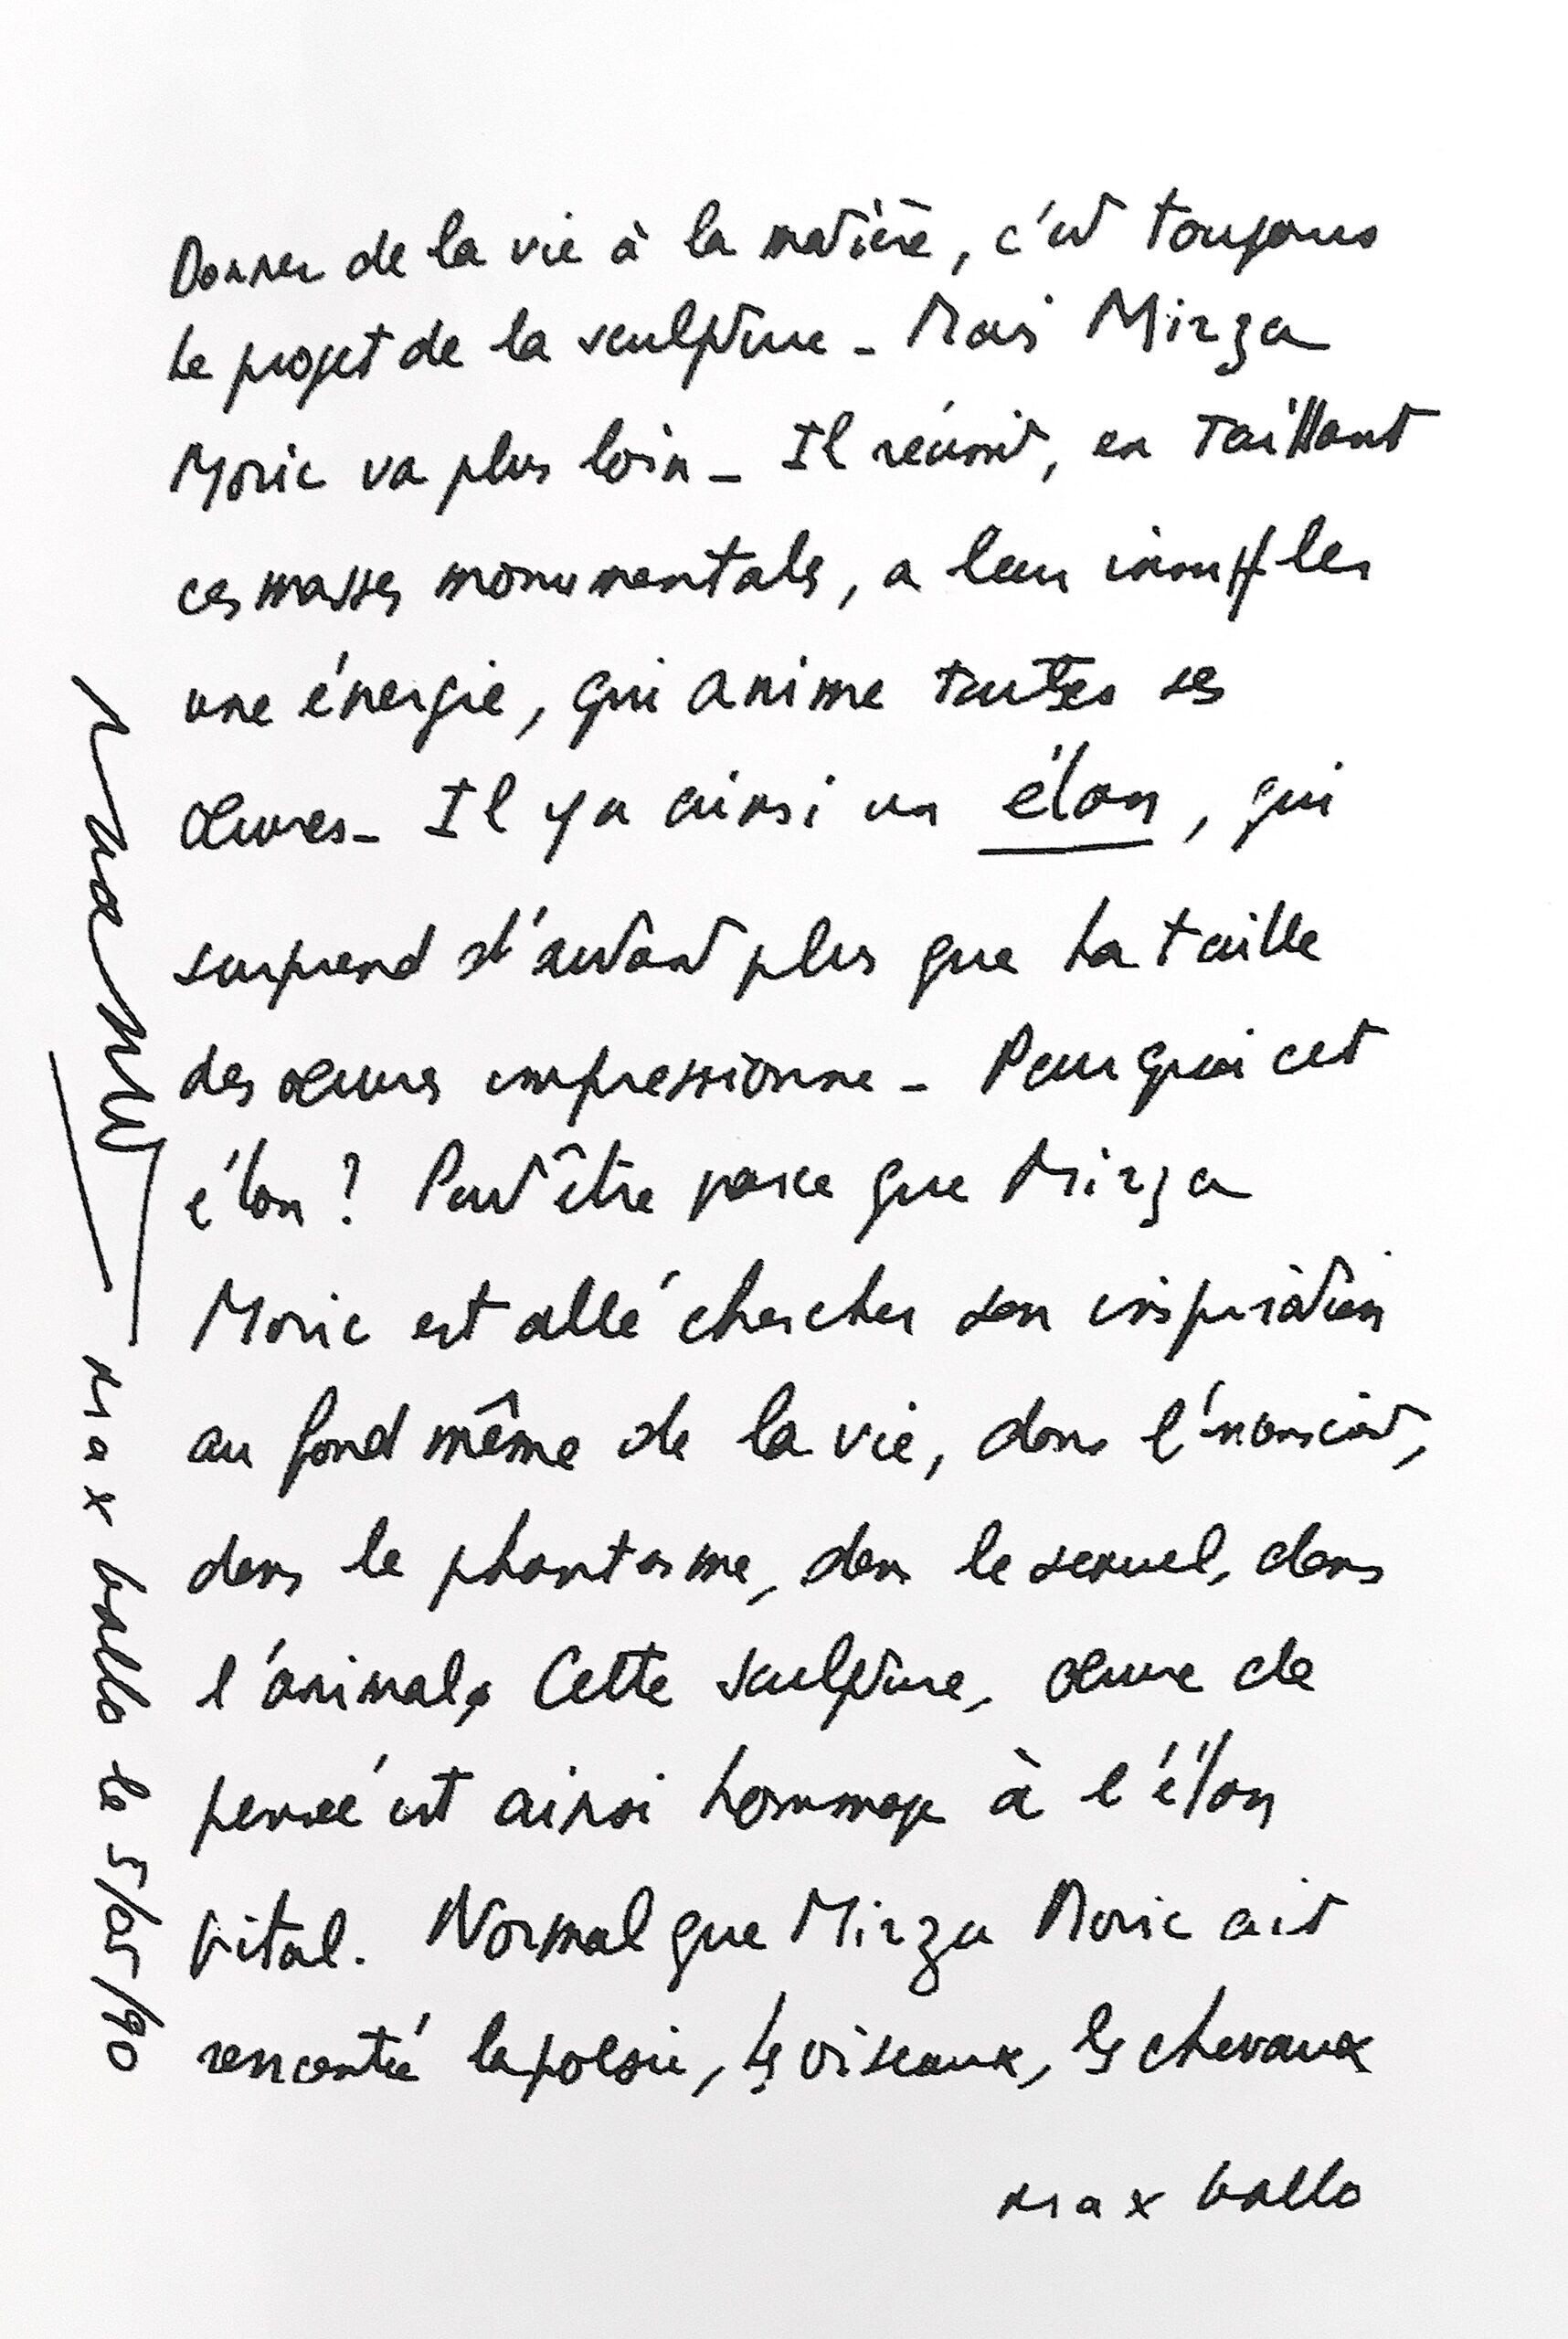 Donner de la vie à la matière, c'est toujours
le projet de la sculpture - Mais Mirza
Moric va plus loin - Il réussit, en taillant
ces masses monumentales, a leur insuffler
une énergie, qui anime toutes ses
œuvres - Il y a ainsi un élan, qui
surprend d'autant plus que la taille
des œuvres impressionne - Pourquoi cet
élan ? Peut être parce que Mirza
Moric est allé chercher son inspiration
au fond même de la vie, dans l'inconscient,
dans le phantasme, dans le sexuel, dans
l'animal, Cette sculpture, œuvre de
pensée est ainsi hommage à l'élan
vital. Normal que Mirza Moric ait
rencontré la poésie, les oiseaux, les chevaux
max gallo
max gallo le 5/05/90